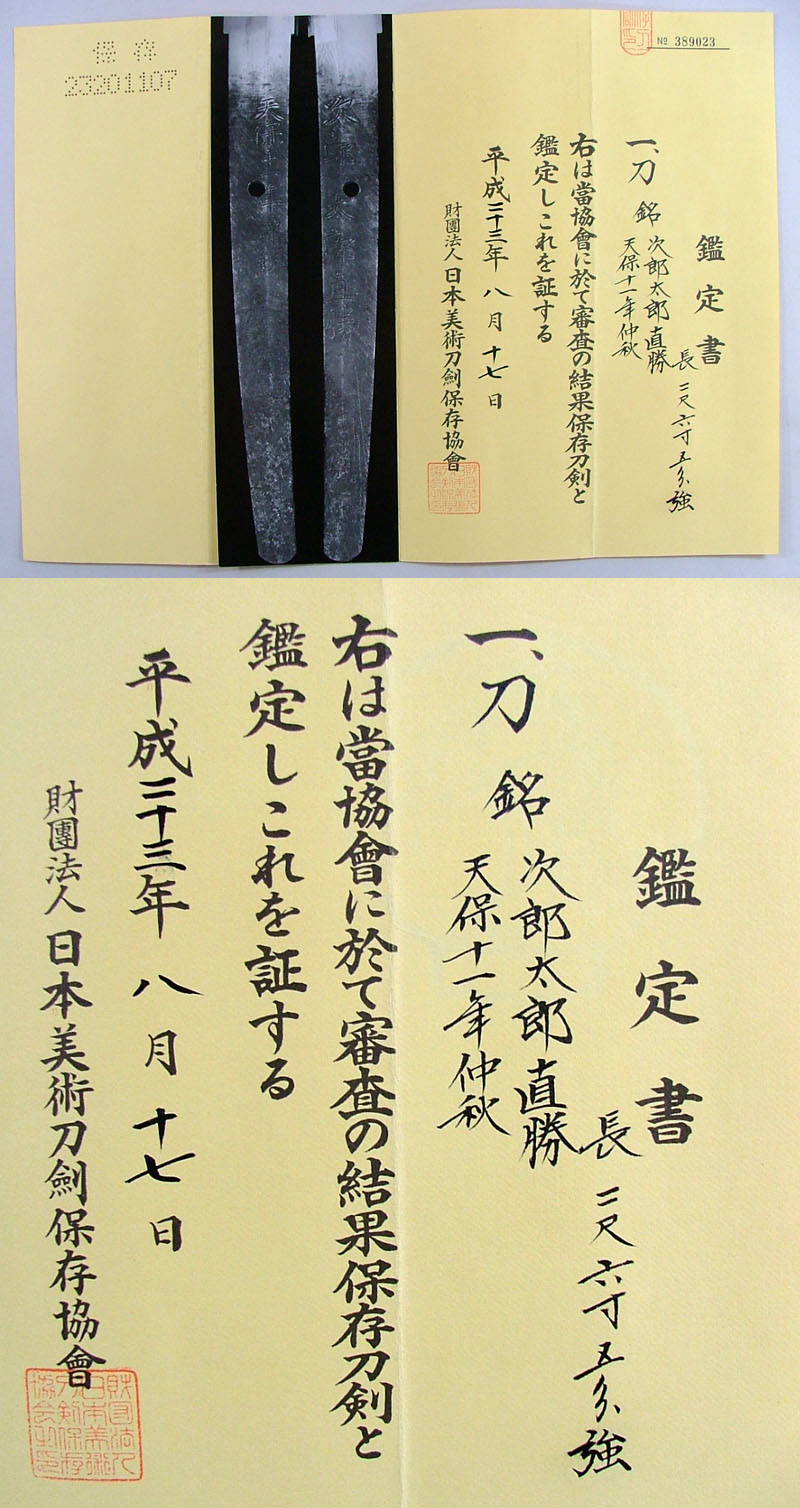 保存
23201107
№ 389023
鑑定書
一、刀 銘 次郎太郎直勝
天保十一年仲秋
長二尺六寸五分強
右は當協會に於て審査の結果保存刀剣と
鑑定しこれを証する
平成二十三年八月十七日
財團法人日本美術刀劍保存協會
鑑定書
一、刀 銘 次郎太郎直勝
天保十一年仲秋
長二尺六寸五分強
右は當協會に於て審査の結果保存刀剣と
鑑定しこれを証する
平成二十三年八月十七日
財團法人日本美術刀劍保存協會